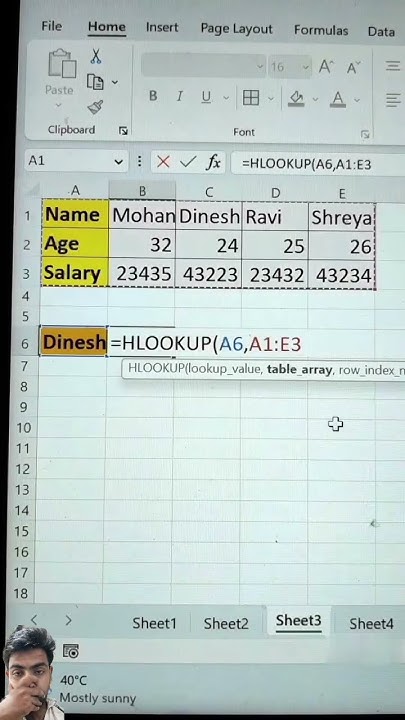 File Home Insert Page Layout Formulas Data
Paste
16 A A
B I U A
Clipboard Font
A1 fx =HLOOKUP(A6,A1:E3
A B C D E
1 Name Mohan Dinesh Ravi Shreya
2 Age 32 24 25 26
3 Salary 23435 43223 23432 43234
4
5
6 Dinesh =HLOOKUP(A6,A1:E3
7 HLOOKUP(lookup_value, table_array, row_index_n
8
9
10
11
12
13
14
15
16
17
18
Sheet1 Sheet2 Sheet3 Sheet4
40°C
Mostly sunny